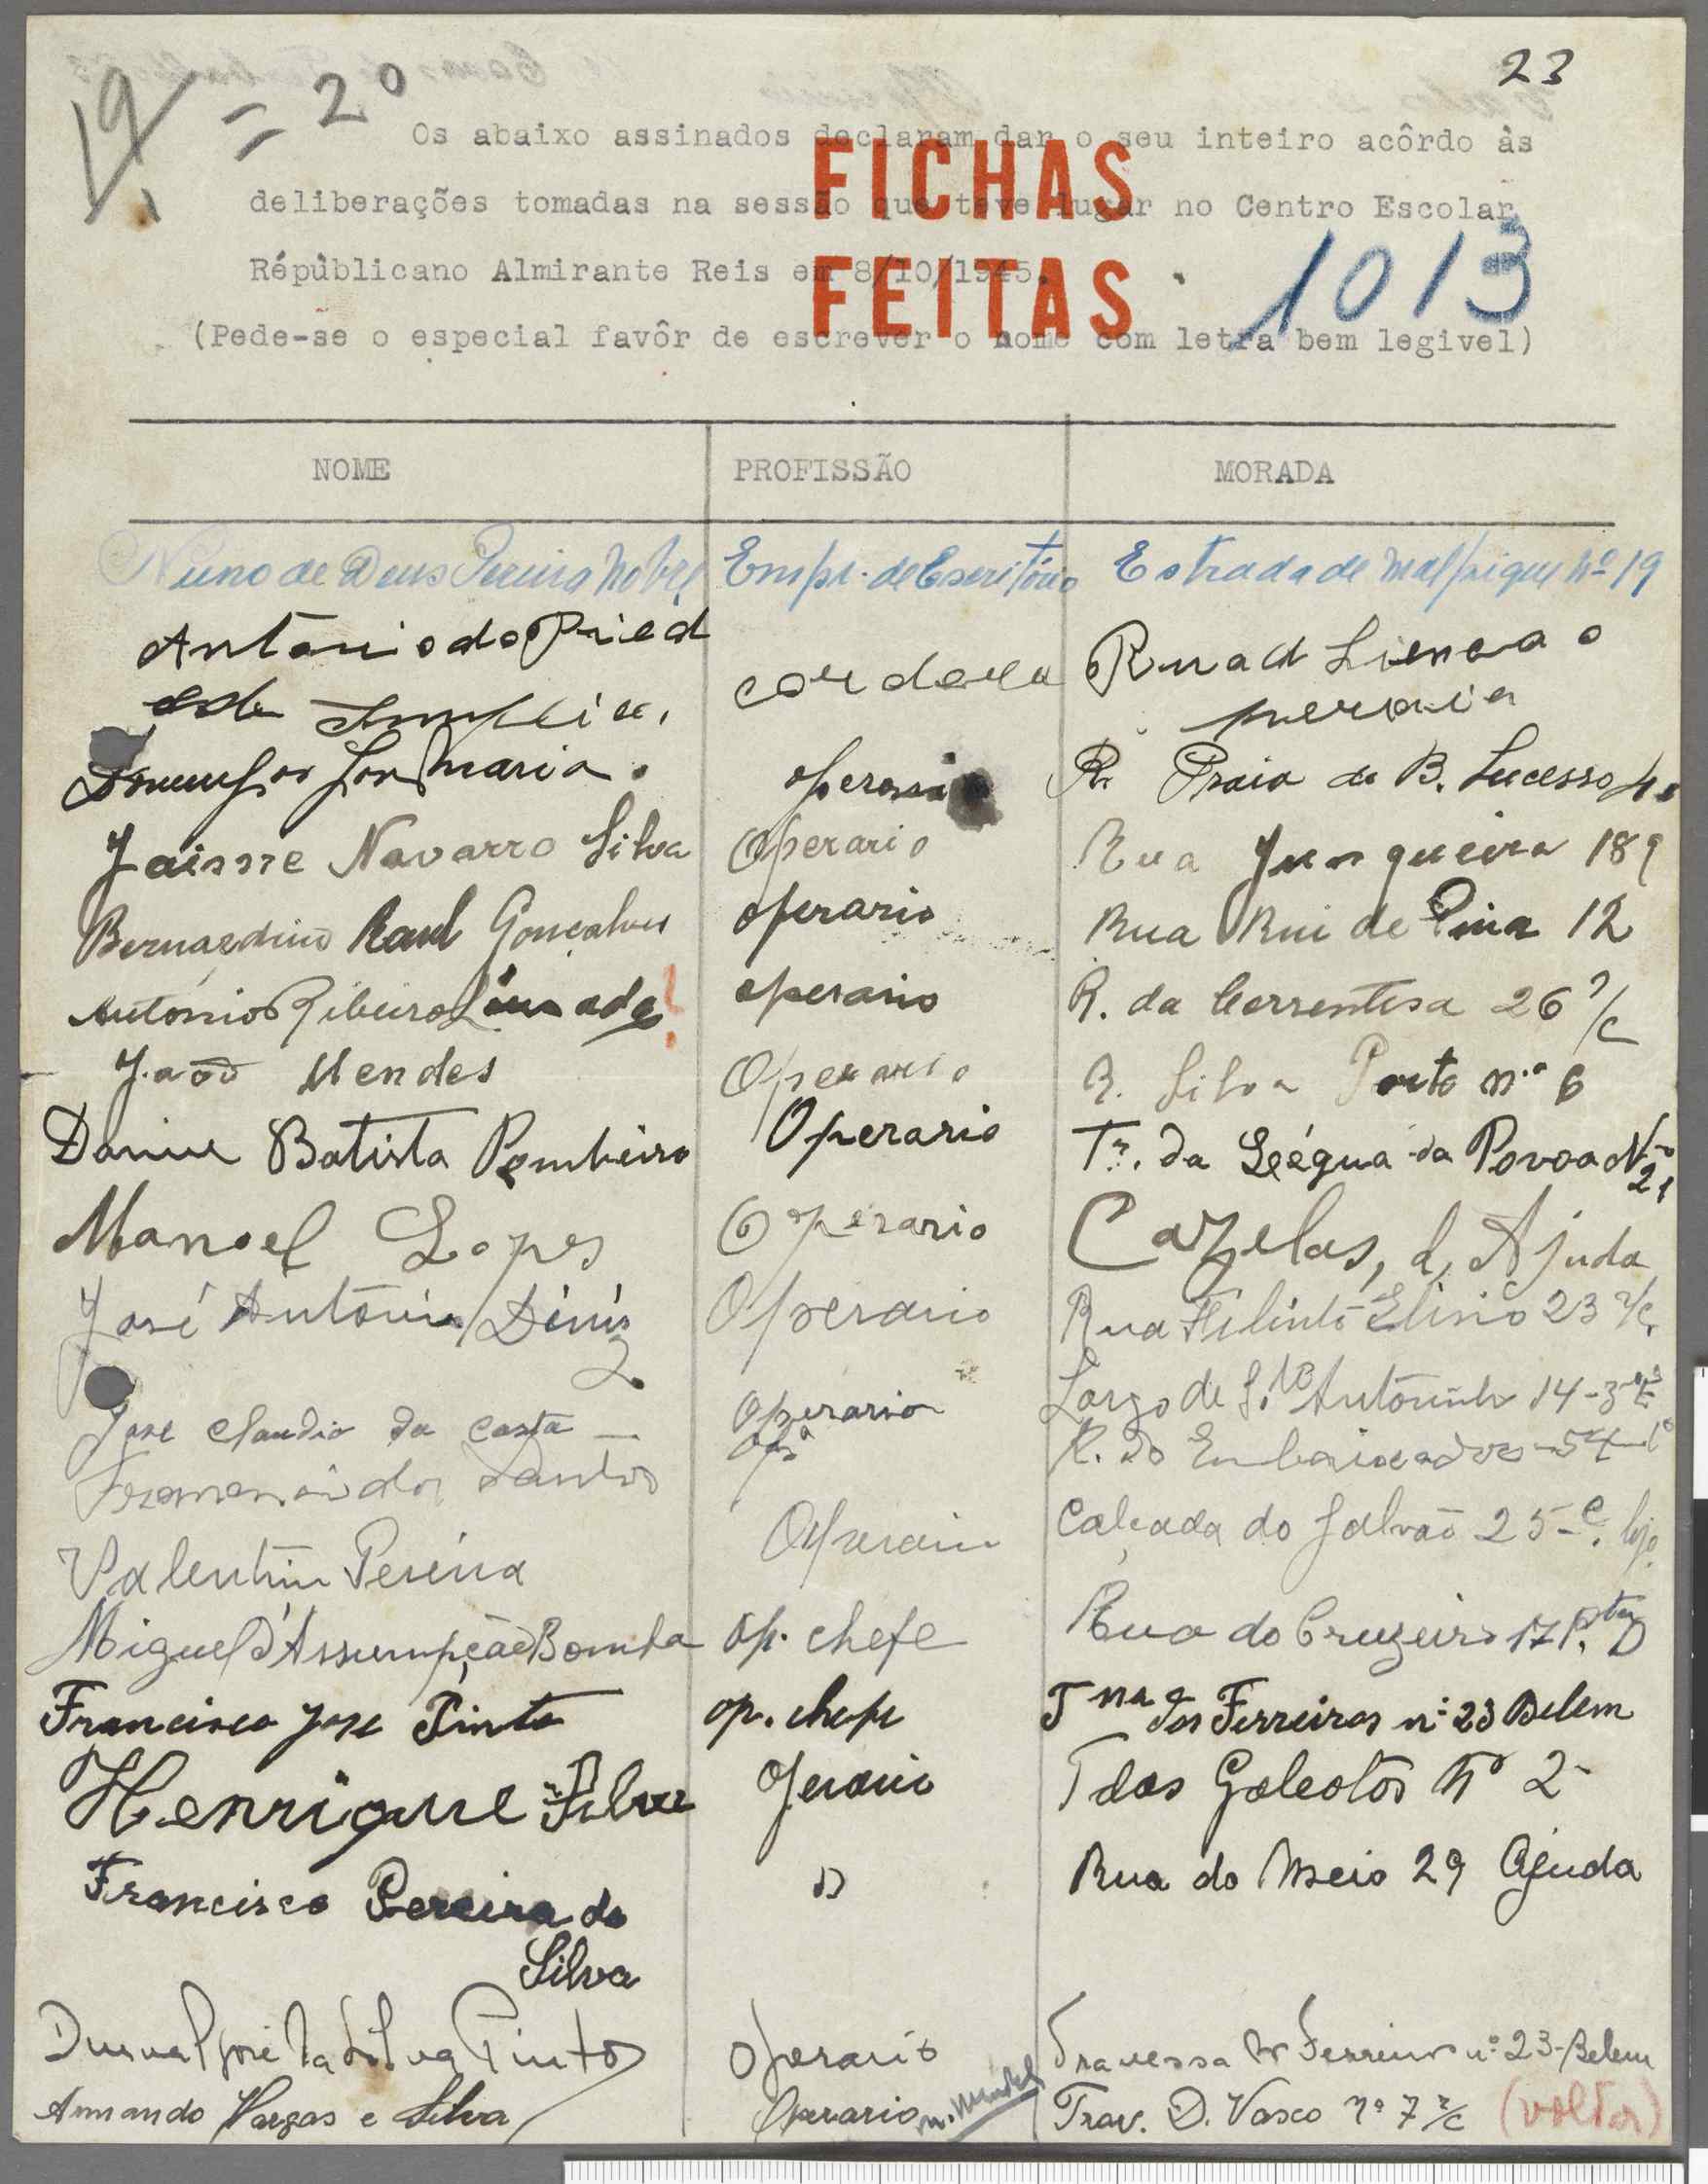 23
19 = 2º
Os abaixo assinados declaram dar o seu inteiro acôrdo às
deliberações tomadas na sessão que teve lugar no Centro Escolar
Républicano Almirante Reis em 8/10/1945.
(Pede-se o especial favôr de escrever o nome com letra bem legivel)
FICHAS
FEITAS
1013
NOME PROFISSÃO MORADA
Nuno de Deus Pereira Nobre Empr. de Escritório Estrada de Malpique nº 19
Antonio da Pied
R.
José Maria. operario R. Praia do B. Sucesso 40
Jaime Navarro Silva Operario Rua Junqueira 189
Bernardino Raul Gonçalves operario Rua Rui de Pina 12
Antonio Ribeiro operario R. da Correntesa 26 r/c
João Mendes Operario R. Silva Porto n.º 6
Batista Pombeiro Operario Tr. da Légua da Povoa Nº 21
Manoel Lopes Operario Cazelas, d, Ajuda
José António Diniz Operario Rua Filinto Elisio 23 r/c.
Jose Claudio da Costa Operario Largo de S.to Antoninho 14-3º E
dos Santos opº R. do Embaixador 54-1º
Valentim Pereira Operario Calçada do Galvão 25-C. loja
Miguel d'Assumpção Bomba op. chefe Rua do Cruzeiro 17 P.ta D
Francisco Jose Pinto op. chefe Tna dos Ferreiros nº 23 Belem
Henrique Silva Operario T das Galeotas Nº 2
Francisco Pereira da » Rua do Meio 29 Ajuda
Silva
Durval José da Silva Pinto Operario Travessa dos Ferreiros nº 23-Belem
Armando Vargas e Silva Operario Trav. D. Vasco nº 7 r/c (voltar)